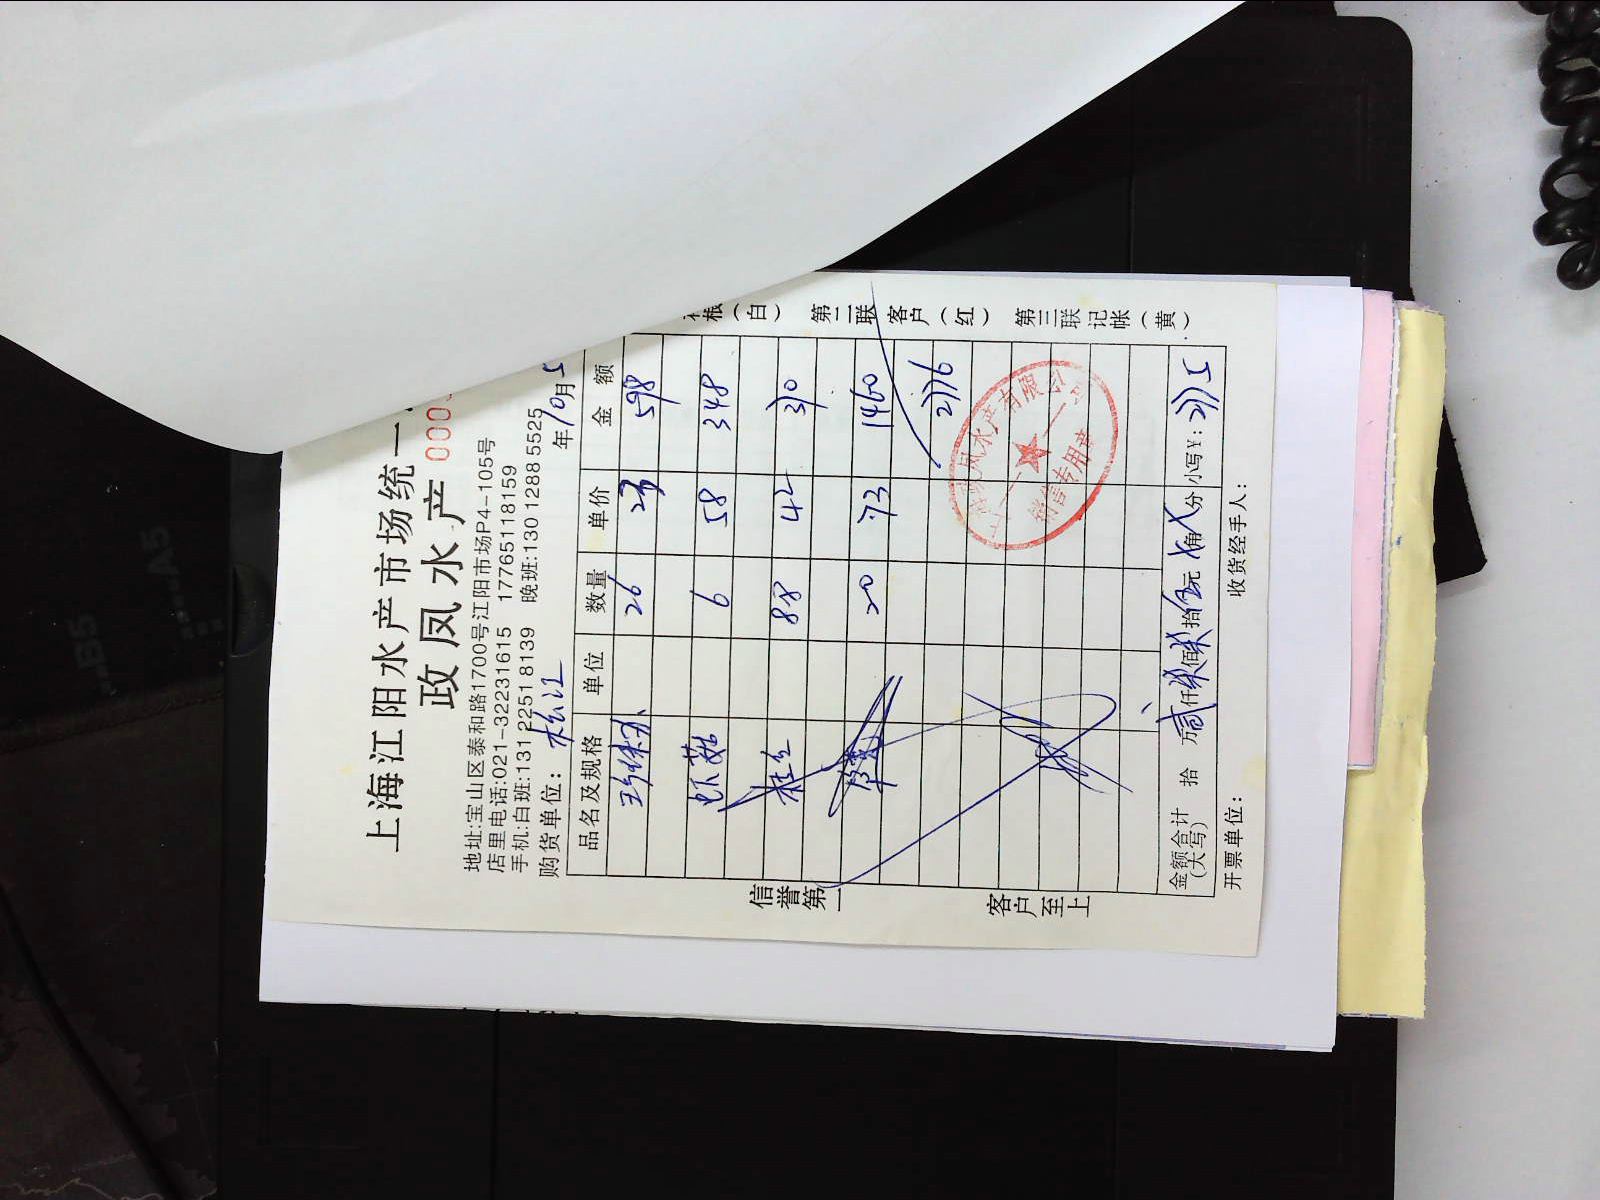 上海江阳水产市场统一
政凤水产 000
地址:宝山区泰和路1700号江阳市场P4-105号
店里电话:021-32231615 17765118159
手机:白班:131 2251 8139 晚班:130 1288 5525
购货单位: 松江 年10月5
品名及规格 单位 数量 单价 金额
26 23 598
虾菇 6 58 348
桂 88 42 370
20 73 1460
2776
金额合计(大写) 拾 万 贰仟柒佰柒拾伍元 角 分 小写¥: 2775
开票单位: 收货经手人:
信誉第一 客户至上
根(白) 第二联 客户(红) 第三联 记帐(黄)
凤水产有限公司
销售专用章
B5
A5